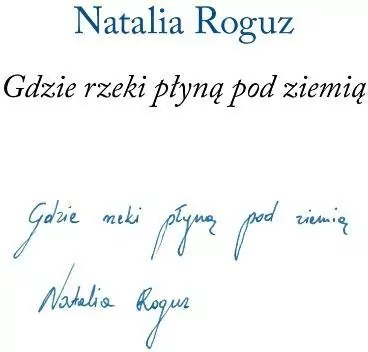 Natalia Roguz
Gdzie rzeki płyną pod ziemią
Gdzie rzeki płyną pod ziemią
Natalia Roguz